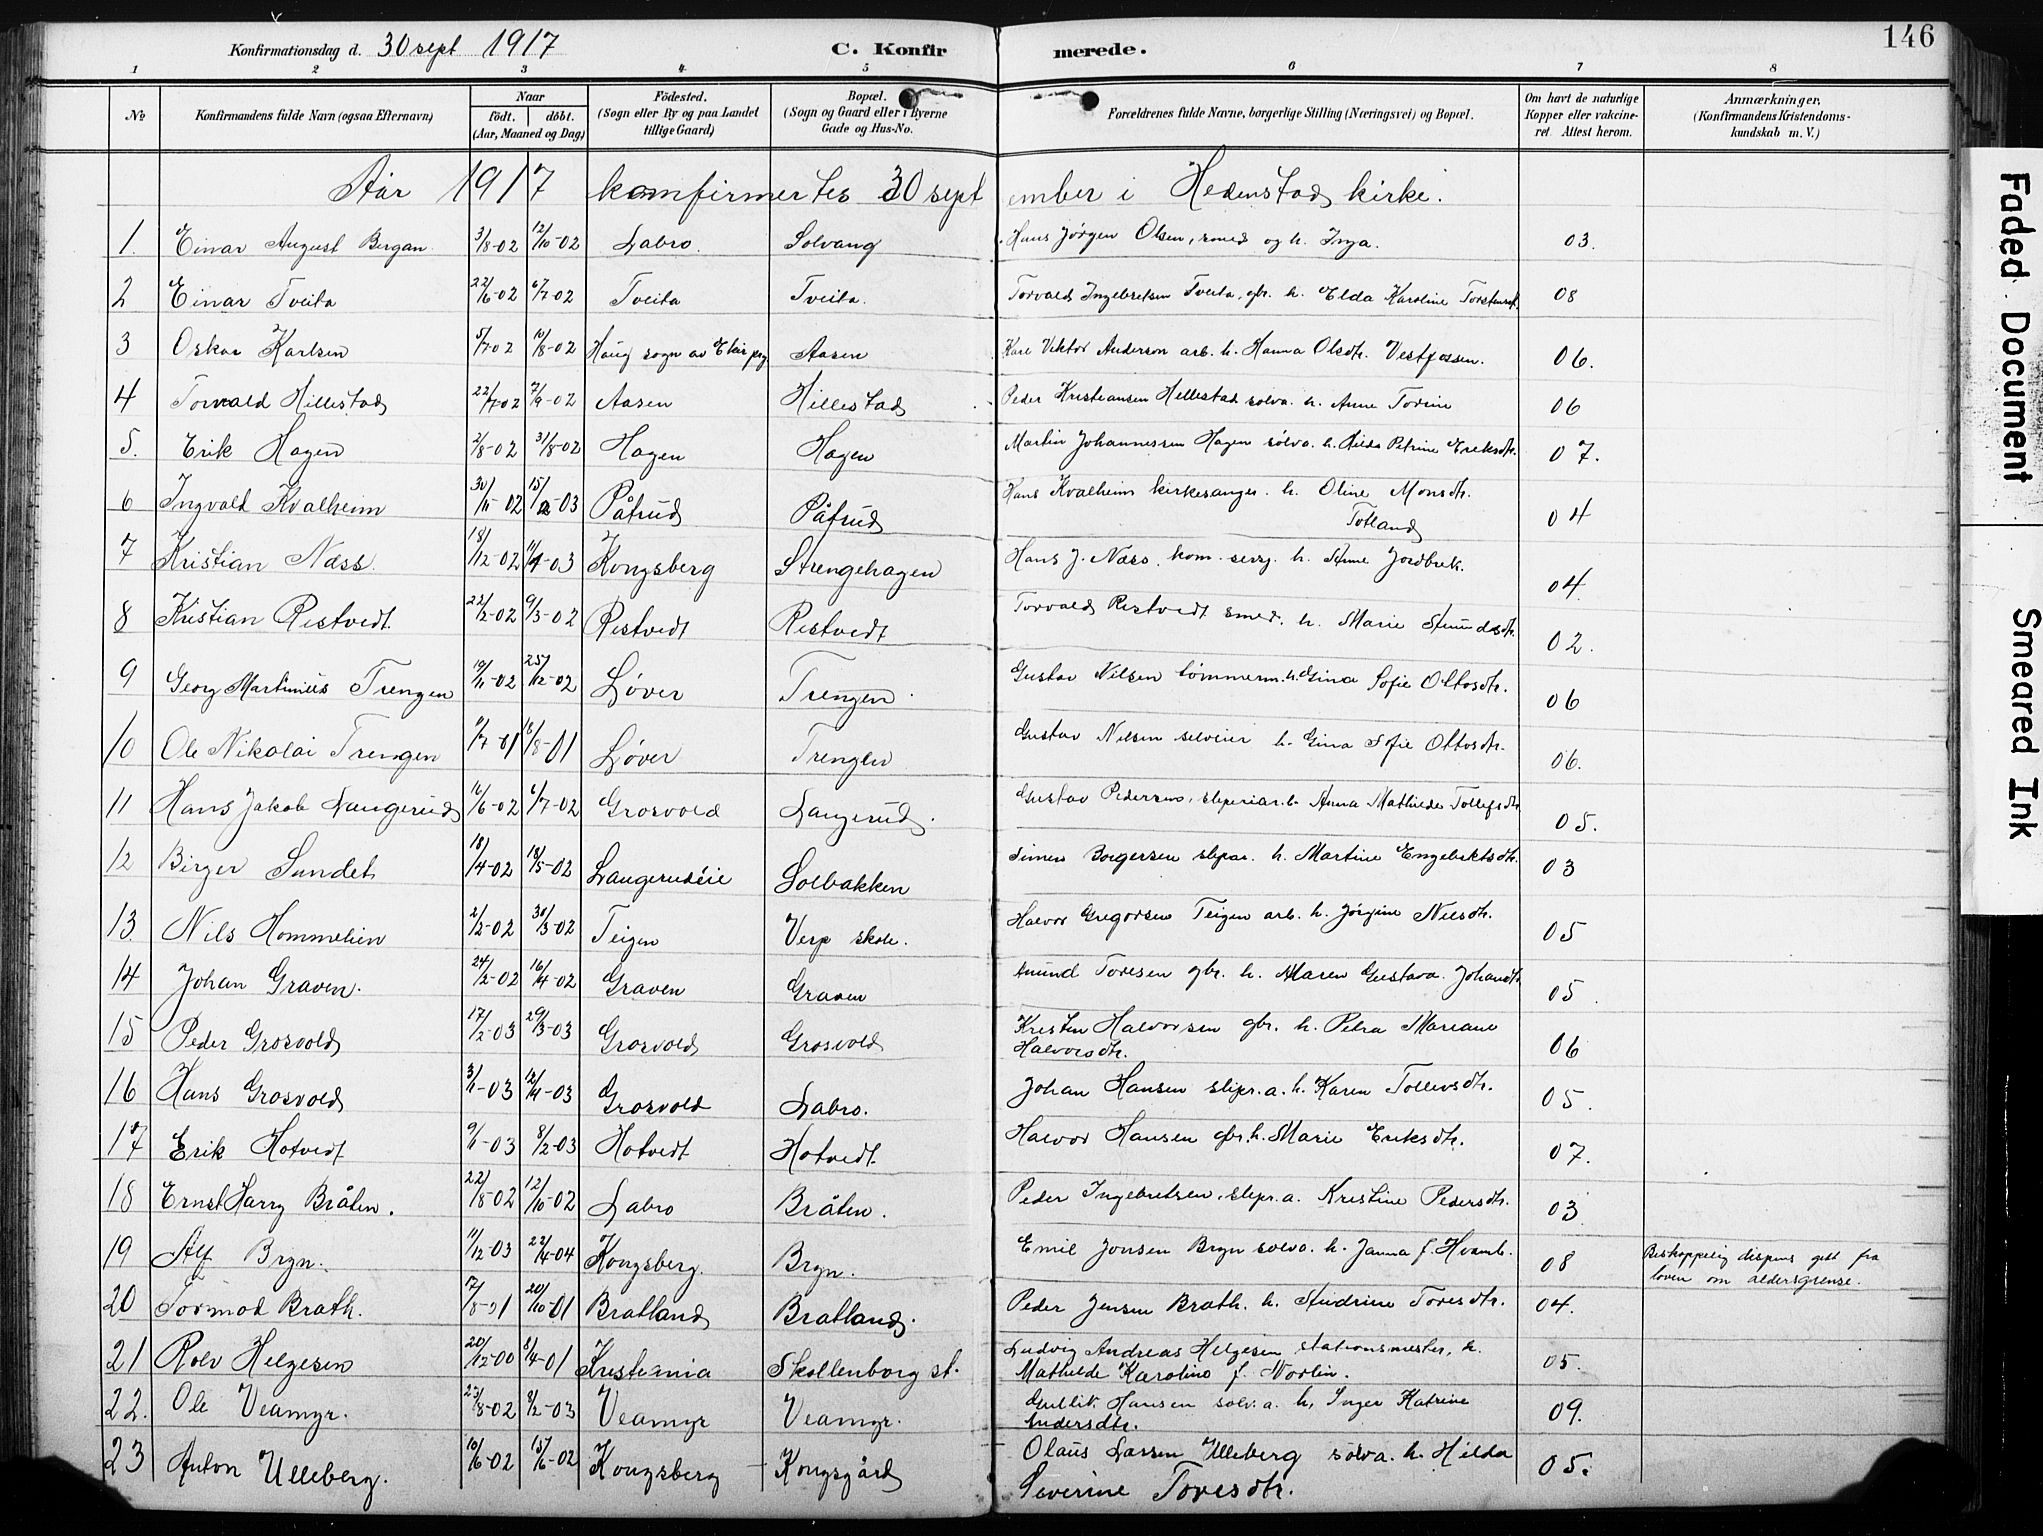 146
Konfirmationsdag d. 30 sept 1917 C. Konfirmerede.
1 2 3 4 5 6 7 8
No
Konfirmandens fulde Navn (ogsaa Efternavn)
Naar
født. døbt.
(Aar, Maaned og Dag)
Fødested.
(Sogn eller By og paa Landet
tillige Gaard)
Bopæl.
(Sogn og Gaard eller i Byerne
Gade og Hus-No.
Forældrenes fulde Navne, borgerlige Stilling (Næringsvei) og Bopæl.
Om havt de naturlige
Kopper eller vakcine-
ret. Attest herom.
Anmærkninger,
(Konfirmandens Kristendoms-
kundskab m. V.)
Aar 1917 konfirmertes 30 september i Hedenstad kirke.
1. Einar August Bergan 3/8-02 12/10-02 Labro. Solvang Hans Jørgen Olsen, smed og h. Inga. 03.
2 Einar Tveita 22/6-02 6/7-02 Tveita Tveita. Torvald Ingebretsen Tveita, gbr. h. Elda Karoline Torstensdt. 08
3 Oskar Karlsen 5/7-02 10/8-02 Haug sogn av Eker prg Aasen Karl Viktor Anderson arb. h. Hanna Olsdtr. Vestfossen. 06.
4 Torvald Hillestad 22/7-02 7/9-02 Aasen Hillestad Peder Kristiansen Hellestad sølva. h. Anne Torine 06
5. Erik Hagen 2/8-02 31/8-02 Hagen Hagen Martin Johannessen Hagen sølva. h. Hilda Petrine Eriksdtr. 07.
6 Ingvald Kvalheim 30/11-02 15/2-03 Påtrud Påtrud Hans Kvalheim kirkesanger. h. Oline Monsdtr.
Totland 04
7 Kristian Næss. 18/12-02 11/4-03 Kongsberg Strengehagen Hans J. Næss, kom. serg. h. Anne Jordbrek. 04.
8 Kristian Restvedt. 22/2-02 9/3-02 Restvedt Restvedt Torvald Restvedt smed. h. Marie Amundsdtr. 02.
9 Georg Martinius Trengen 19/11-02 25/12-02 Løver Trengen. Gustav Nilsen tømmerm. h. Gina Sofie Ottosdtr. 06
10 Ole Nikolai Trengen 9/7-01 18/8-01 Løver Trengen Gustav Nilsen h. Gina Sofie Ottosdtr. 06.
11 Hans Jakob Langerud 16/6-02 6/7-02 Grosvold Langerud. Gustav Pedersen, sliperiar. h. Anna Mathilde Tollefsdtr 05.
12 Birger Sundet 18/4-02 18/5-02 Langerudeie Solbakken Simen Borgersen slipar. h. Martine Engebretsdtr. 03
13. Nils Hommelien 2/2-02 30/3-02 Teigen Verp skole. Halvor Gregorsen Teigen arb. h. Jørgine Nilsdtr. 05
14 Johan Graven. 24/2-02 16/4-02 Graven Graven Amund Toresen gbr. h. Maren Gustava Johandtr 05
15 Peder Grosvold 17/2-03 29/3-03 Grosvold Grosvold Kristen Halvorsen gbr. h. Petra Mariane
Halvorsdtr. 06
16 Hans Grosvold 3/1-03 12/4-03 Grosvold Labro. Johan Hansen slipr. a. h. Karen Tollevsdtr. 05.
17 Erik Hotvedt 9/1-03 8/2-03 Hotvedt Hotvedt. Halvor Hansen gbr. h. Marie Eriksdtr. 07.
18 Ernst Harry Bråten. 22/8-02 12/10-02 Labro Bråten. Peder Ingebretsen, slipr. a. Kristine Pedersdtr. 03
19 Alf Bryn. 11/12-03 22/4-04 Kongsberg. Bryn. Emil Jonsen Bryn sølva. h. Janna f. Hvamb. 08 Biskoppelig dispens gitt fra
loven om aldersgrense.
20 Tormod Brath. 7/8-01 20/10-01 Bratland Bratland. Peder Jensen Brath. h. Andrine Toresdtr. 04.
21 Rolv Helgesen 20/12-00 8/4-01 Kristiania Skollenborg st. Ludvig Andreas Helgesen stationsmester, h.
Mathilde Karoline f. Norlin. 05.
22. Ole Veamyr. 23/8-02 8/2-03 Veamyr Veamyr. Gullik Hansen sølv. a. h. Inger Katrine
Andersdtr. 09.
23 Anton Ulleberg. 10/6-02 15/6-02 Kongsberg Kongsgård Olaus Larsen Ulleberg sølva. h. Hilda
Severine Toresdtr. 05.
Faded Document
Smeared Ink